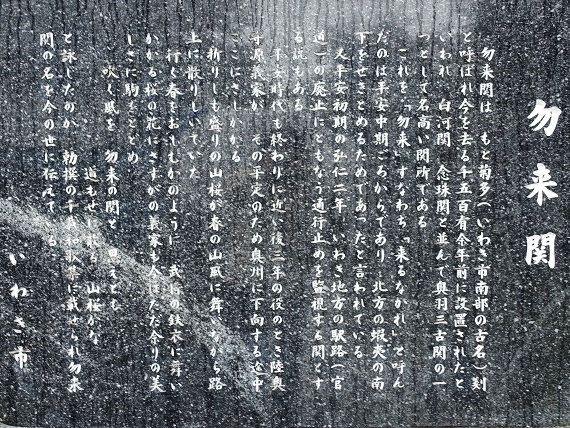 勿来関
勿来関は もと菊多(いわき市南部の古名)剗
と呼ばれ今を去る千五百有余年前に設置されたと
いわれ 白河関 念珠関と並んで奥羽三古関の一
つとして名高い関所である
これを「勿来」すなわち「来るなかれ」と呼ん
だのは平安中期ごろからであり 北方の蝦夷の南
下をせきとめるためであったと言われている
又平安初期の弘仁二年 いわき地方の駅路(官
道)の廃止にともなう通行止めを監視する関とす
る説もある
平安時代も終わりに近い後三年の役のとき陸奥
守源義家が その平定のため奥州に下向する途中
ここにさしかかる
折りしも盛りの山桜が春の山風に舞いながら路
上に散りしいていた
行く春をおしむかのように 武将の鉄衣に舞い
かかる桜の花にさすがの義家も今はただ余りの美
しさに駒をとどめ
吹く風を 勿来の関と 思えども
道もせに散る 山桜かな
と詠じたのが 勅撰の千載和歌集に載せられ勿来
関の名を今の世に伝えてる
いわき市